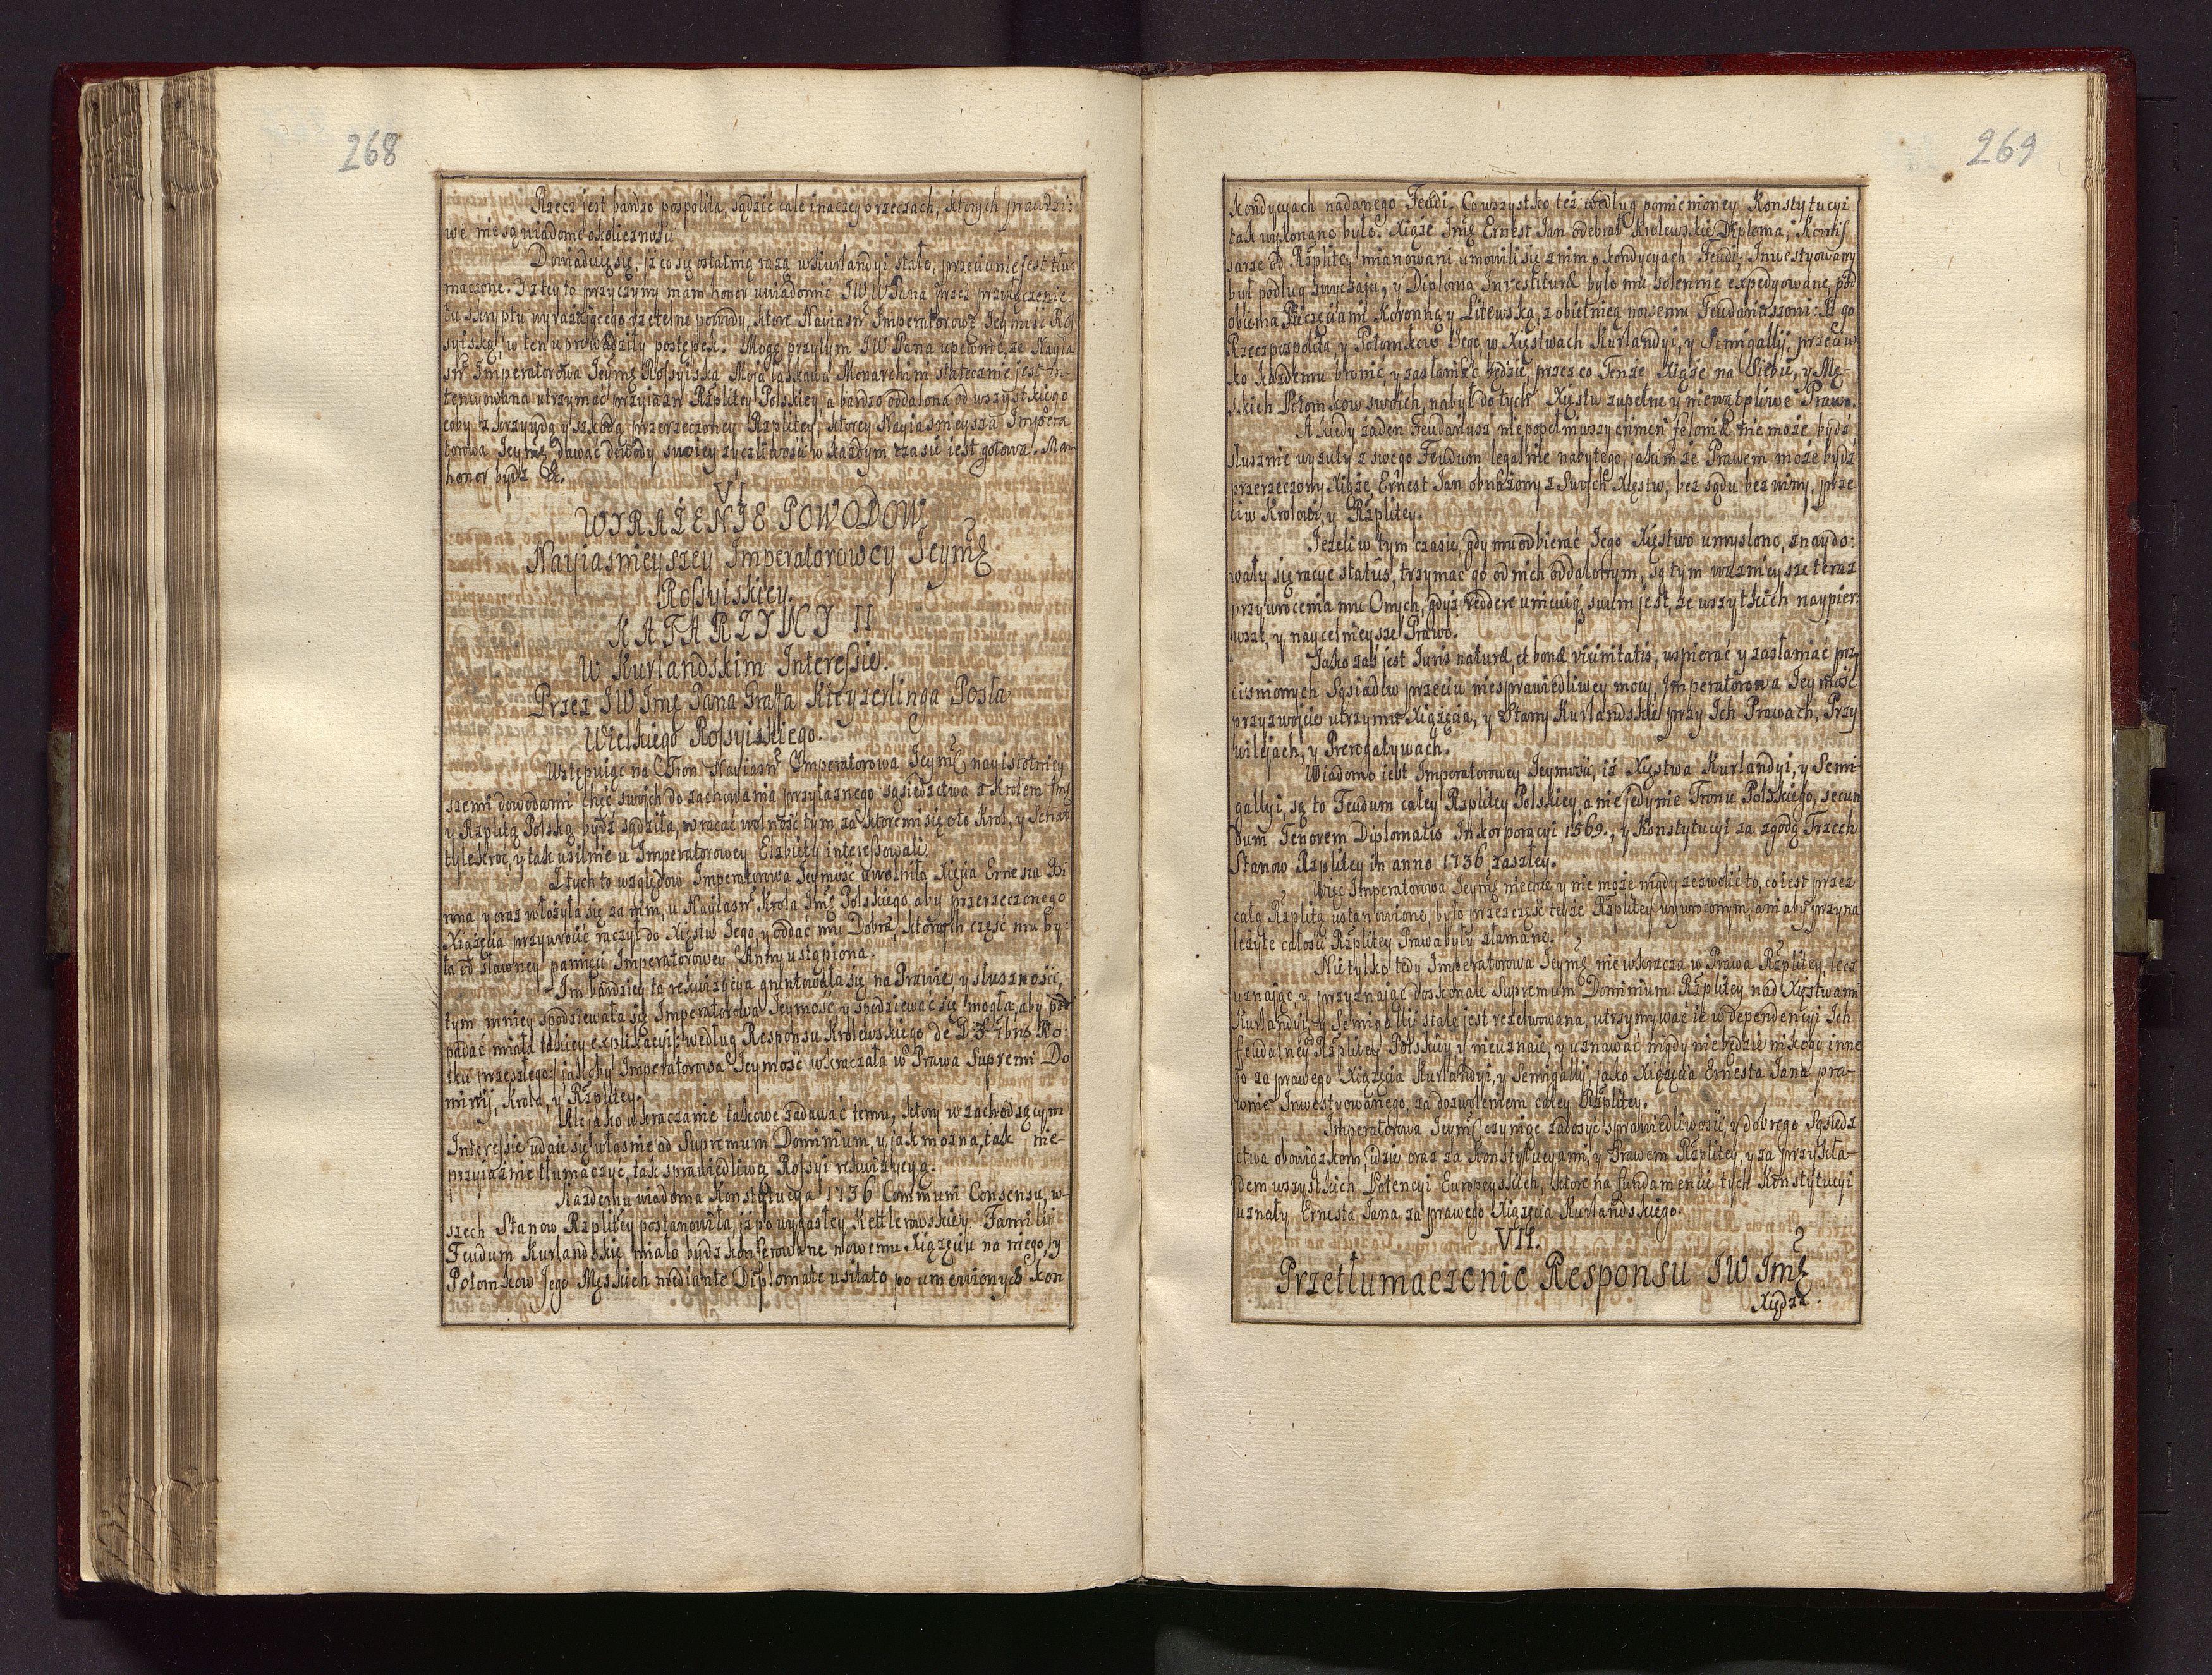 268
Rzecz jest bardzo pospolita, sądzić cale inaczey o rzeczach, ktorych prawdzi:
we nie są wiadome okolicznosci.
Dowiaduię się, iz co się ostatnią razą w Kurlandyi stało, przeciwnie jest tłu:
maczone. Iz tey to przyczyny mam honor uwiadomić JW WPana przez przyłączenie
tu skryptu wyrazaiącego rzetelne powody, ktore Nayiasn Imperatorowę Jeymość Ros
syiską w ten uprowadziły postępek. Mogę przytym JW Pana upewnić, ze Nayia
sn Imperatorowa Jeymę Rossyiska Moja łaskawa Monarchini statecznie jest in-
tencyowana utrzymać przyiazn Rzplitey Polskiey a bardzo oddalona od wszystkiego
coby z krzywdą y szkodą przerzeczoney Rzplitey, ktorey Nayiasnieysza Impera
torowa Jeymę dawać dowody swoiey zyczliwosci w kazdym czasie iest gotowa. Mam
honor bydz &c.
VI
WYRAŻENIE POWODOW
Nayiasnieyszey Imperatorowey Jeymę
Rossyiskiey.
KATARZYNY II
W Kurlandskim Interessie.
Przez JW Jmę Pana Graffa Kieyzerlinga Posła
Wielkiego Rossyiskiego.
Wstępuiąc na Tron Nayiasn Imperatorowa Jeymę nayistotniey
szemi dowodami chęć swoich do zachowania przyiaznego sąsiedzctwa z Krolem Jmę
y Rzplitą Polską bydz sądziła, wracać wolność tym, za ktoremi się oto Krol, y Senat
tylekroć, y tak usilnie u Imperatorowey Elzbiety interessowali.
Z tych to względow Imperatorowa Jeymość uwolniła Xięcia Ernesta Bi
rona y oraz włożyła się za nim, u Nayiasn Krola Jmę Polskiego, aby przerzeczonego
Xiążęcia przywrocić raczył do Xięstw Jego, y oddać mu Dobra, ktorych część mu by:
ła od sławney pamięci Imperatorowey Anny ustąpiona.
Im bardziey ta rekwizycya gruntowała się na Prawie, y słusznosci,
tym mniey spodziewała się Imperatorowa Jeymość, y spodziewać się mogła, aby pod
padać miała takiey explikacyi: według Responsu Krolewskiego de D. 3 7bris Ro:
ku przeszłego: jakoby Imperatorowa Jeymość wkraczała w Prawa Supremi Do
minij, Krola, y Rzplitey.
Ale jako wkraczanie takowe zadawać temu, ktory w zachodzącym
Interessie udaie się własnie ad Supremum Dominium, y jak mozna, tak nie-
przyiaznie tłumaczyć, tak sprawiedliwą Rossyi rekwizycyą.
Kazdemu wiadoma Konstytucya 1736 Communi Consensu, w-
szech Stanow Rzplitey postanowiła, iz po wygasłey Kettlerowskiey Familii
Feudum Kurlandskie miało bydz konferowane nowemu Xiązęciu na niego, y
Potomkow Jego Męskich mediante Diplomate usitato po umowionych kon
269
kondycyach nadanego Feudi. Co wszystko tez według pomienioney Konstytucyi
tak wykonano było. Xiąże Jmę Ernest Jan odebrał Krolewskie Diploma, Komis
sarze od Rzplitey mianowani umowili się z nim o kondycyach Feudi, Inwestyowany
był podług zwyczaju, y Diploma Investituræ było mu solennie expedyowane pod
obiema Pieczęciami Koronną y Litewską, z obietnicą nowemu Feudatarszowi: iz go
Rzeczpospolita, y Potomkow Jego, w Xięstwach Kurlandyi, y Semigallij, przeciw
ko kazdemu bronić, y zasłaniać będzie, przez co Tenże Xiąże na Siebie, y Mę-
skich Potomkow swoich, nabył do tych Xięstw zupełne y niewątpliwe Prawo.
A kiedy zaden Feudariusz niepopełniwszy crimen feloniæ nie może bydz
słusznie wyzuty z swego Feudum legalnie nabytego, jakimże Prawem może bydz
przerzeczony Xiąże Ernest Jan obnażony z Swoich Xięstw, bez sądu, bez winy, prze
ciw Krolowi, y Rzplitey.
Jeżeli w tym czasie, gdy mu odbierać Jego Xięstwo umyslono, znaydo:
wały się racye status, trzymać go od nich oddalonym, są tym wazniejsze teraz
przywrocenia mu Onych, gdyż reddere unicuiq suum jest, ze wszytkich naypier:
wsze, y naycelnieysze Prawo.
Jako zaś jest Juris naturæ, et bonæ vicinitatis, wspierać y zasłaniać przy
cisnionych Sąsiadow przeciw niesprawiedliwey mocy, Imperatorowa Jeymość
przyzwoicie utrzymuie Xiążęcia, y Stany Kurlandskie przy Ich Prawach, Przy
wilejach, y Prerogatywach.
Wiadomo iest Imperatorowey Jeymości, iż Xięstwa Kurlandyi, y Semi-
gallyi, są to Feudum całey Rzplitey Polskiey, a nie jedynie Tronu Polskiego, secun
dum Tenorem Diplomatis Inkorporacyi 1569., y Konstytucyi za zgodą Trzech
Stanow Rzplitey in anno 1736 zaszłey.
Więc Imperatorowa Jeymę niechce, y nie może nigdy zezwolić to, co iest przez
całą Rzplitą ustanowione, było przez część teyże Rzplitey wywroconym, ani aby przyna
leżyte całości Rzplitey Prawa były złamane.
Nie tylko tedy Imperatorowa Jeymę nie wkracza w Prawa Rzplitey, lecz
uznając, y przyznając doskonale Supremum Dominium Rzplitey nad Xięstwami
Kurlandyi, y Semigallij stale jest rezolwowana, utrzymywać ie w dependencyi Ich
feudalney Rzplitey Polskiey y nieuznaie, y uznawać nigdy nie będzie nikogo inne
go za prawego Xiążęcia Kurlandyi, y Semigallij, jako Xiążęcia Ernesta Jana pra-
wnie Inwestyowanego, za dozwoleniem całey Rzplitey.
Imperatorowa Jeymę czyniąc zadosyć sprawiedliwości, y dobrego Sąsiedz
ctwa obowiązkom, idzie oraz za Konstytucyami, y Prawem Rzplitey, y za przykła-
dem wszystkich Potencyi Europeyskich, ktore na fundamencie tych Konstytucyi
uznały Ernesta Jana za prawego Xiążęcia Kurlandskiego.
VII.
Przetłumaczenie Responsu JW Jmę
Xiędza.